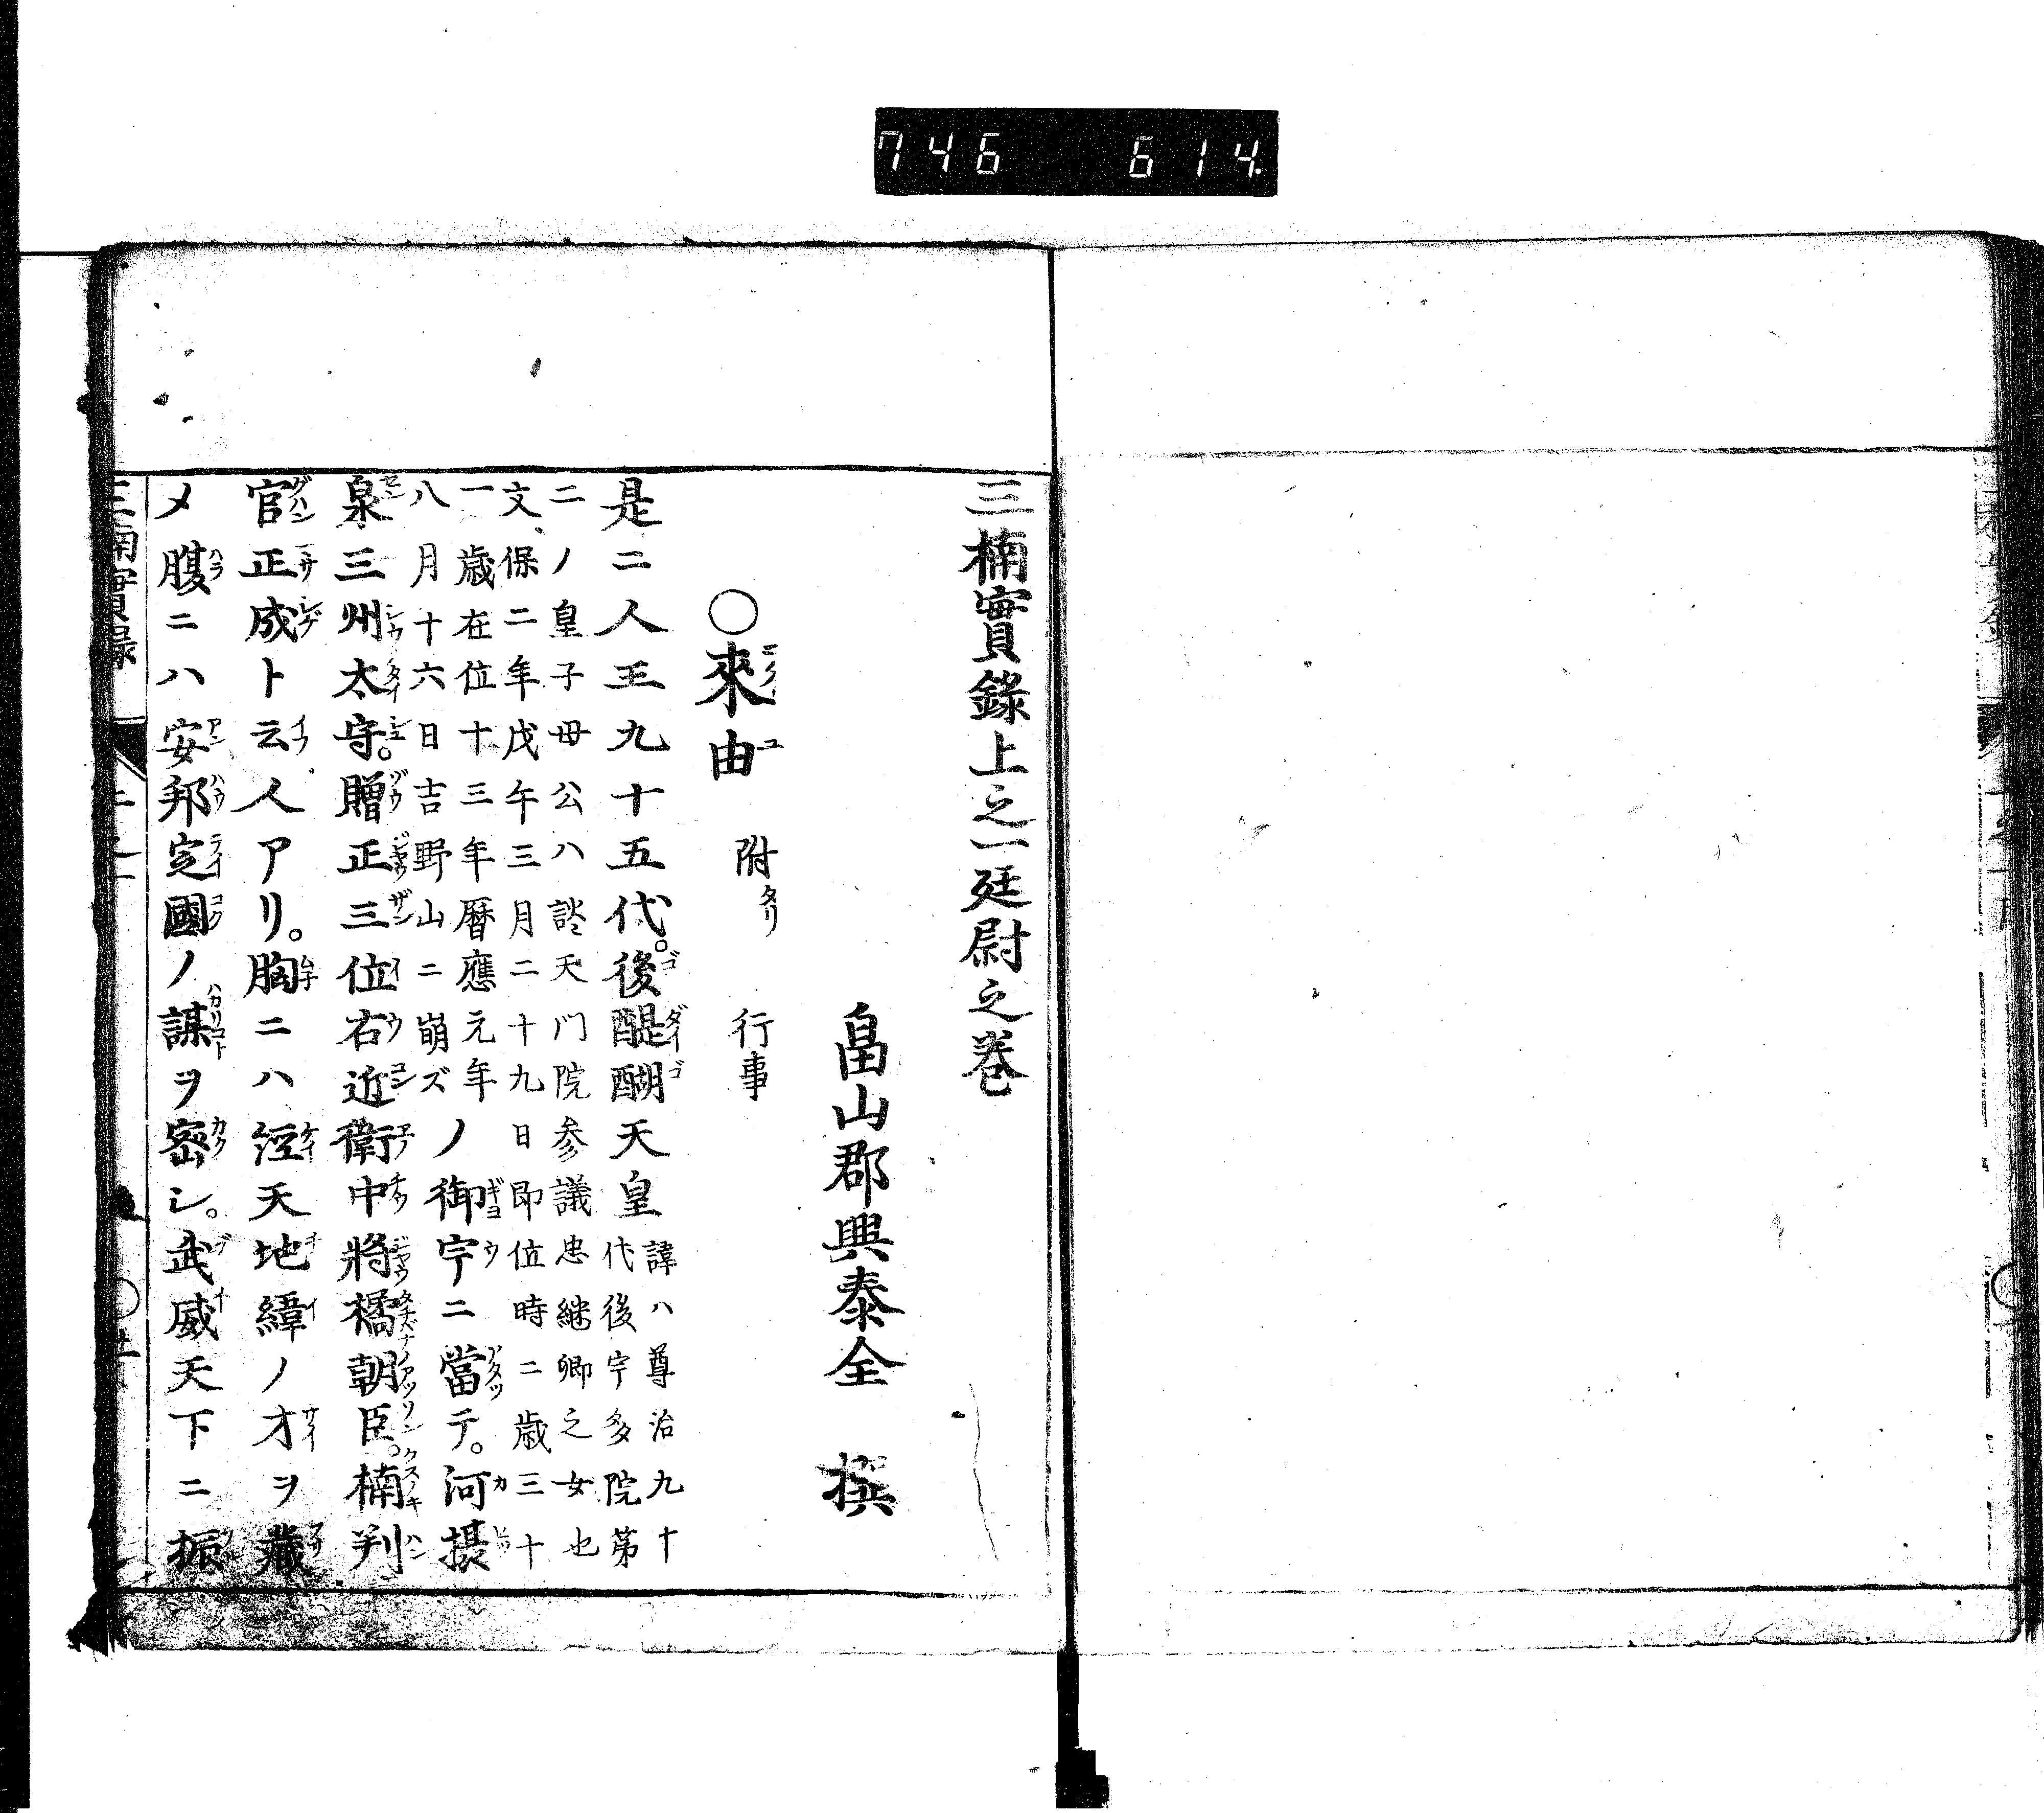 746 614
三楠實錄上之一廷尉之巻
畠山郡興泰全撰
○來由 附タリ 行事
是ニ人王九十五代。後醍醐天皇
諱ハ尊治九十
代後宇多院第
二ノ皇子母公ハ談天门院参議忠継卿之女也
文保二年戊午三月二十九日即位時ニ歳三十
一歳在位十三年暦應元年
八月十六日吉野山ニ崩ズ
ノ御宇ニ當テ。河摂
泉三州太守。贈正三位右近衛中將橘朝臣。楠判
官正成ト云人アリ。胸ニハ經天地緯ノ才ヲ藏
メ腹ニハ安邦定國ノ謀ヲ密シ。武威天下ニ振
三楠實録